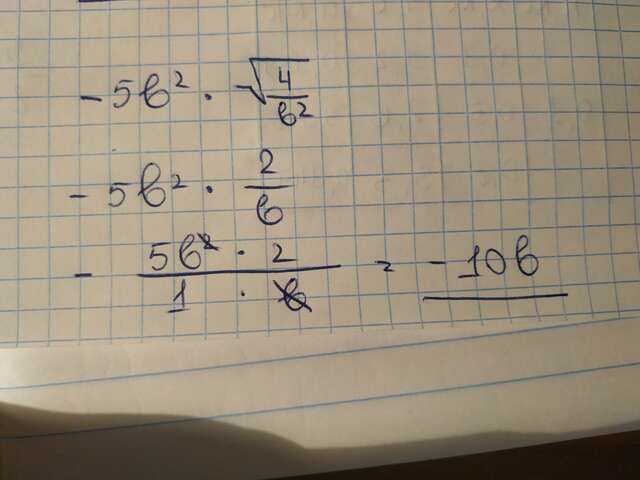 - 5b² · √4/b²
- 5b² · 2/b
- 5b² · 2 / 1 · b = - 10b